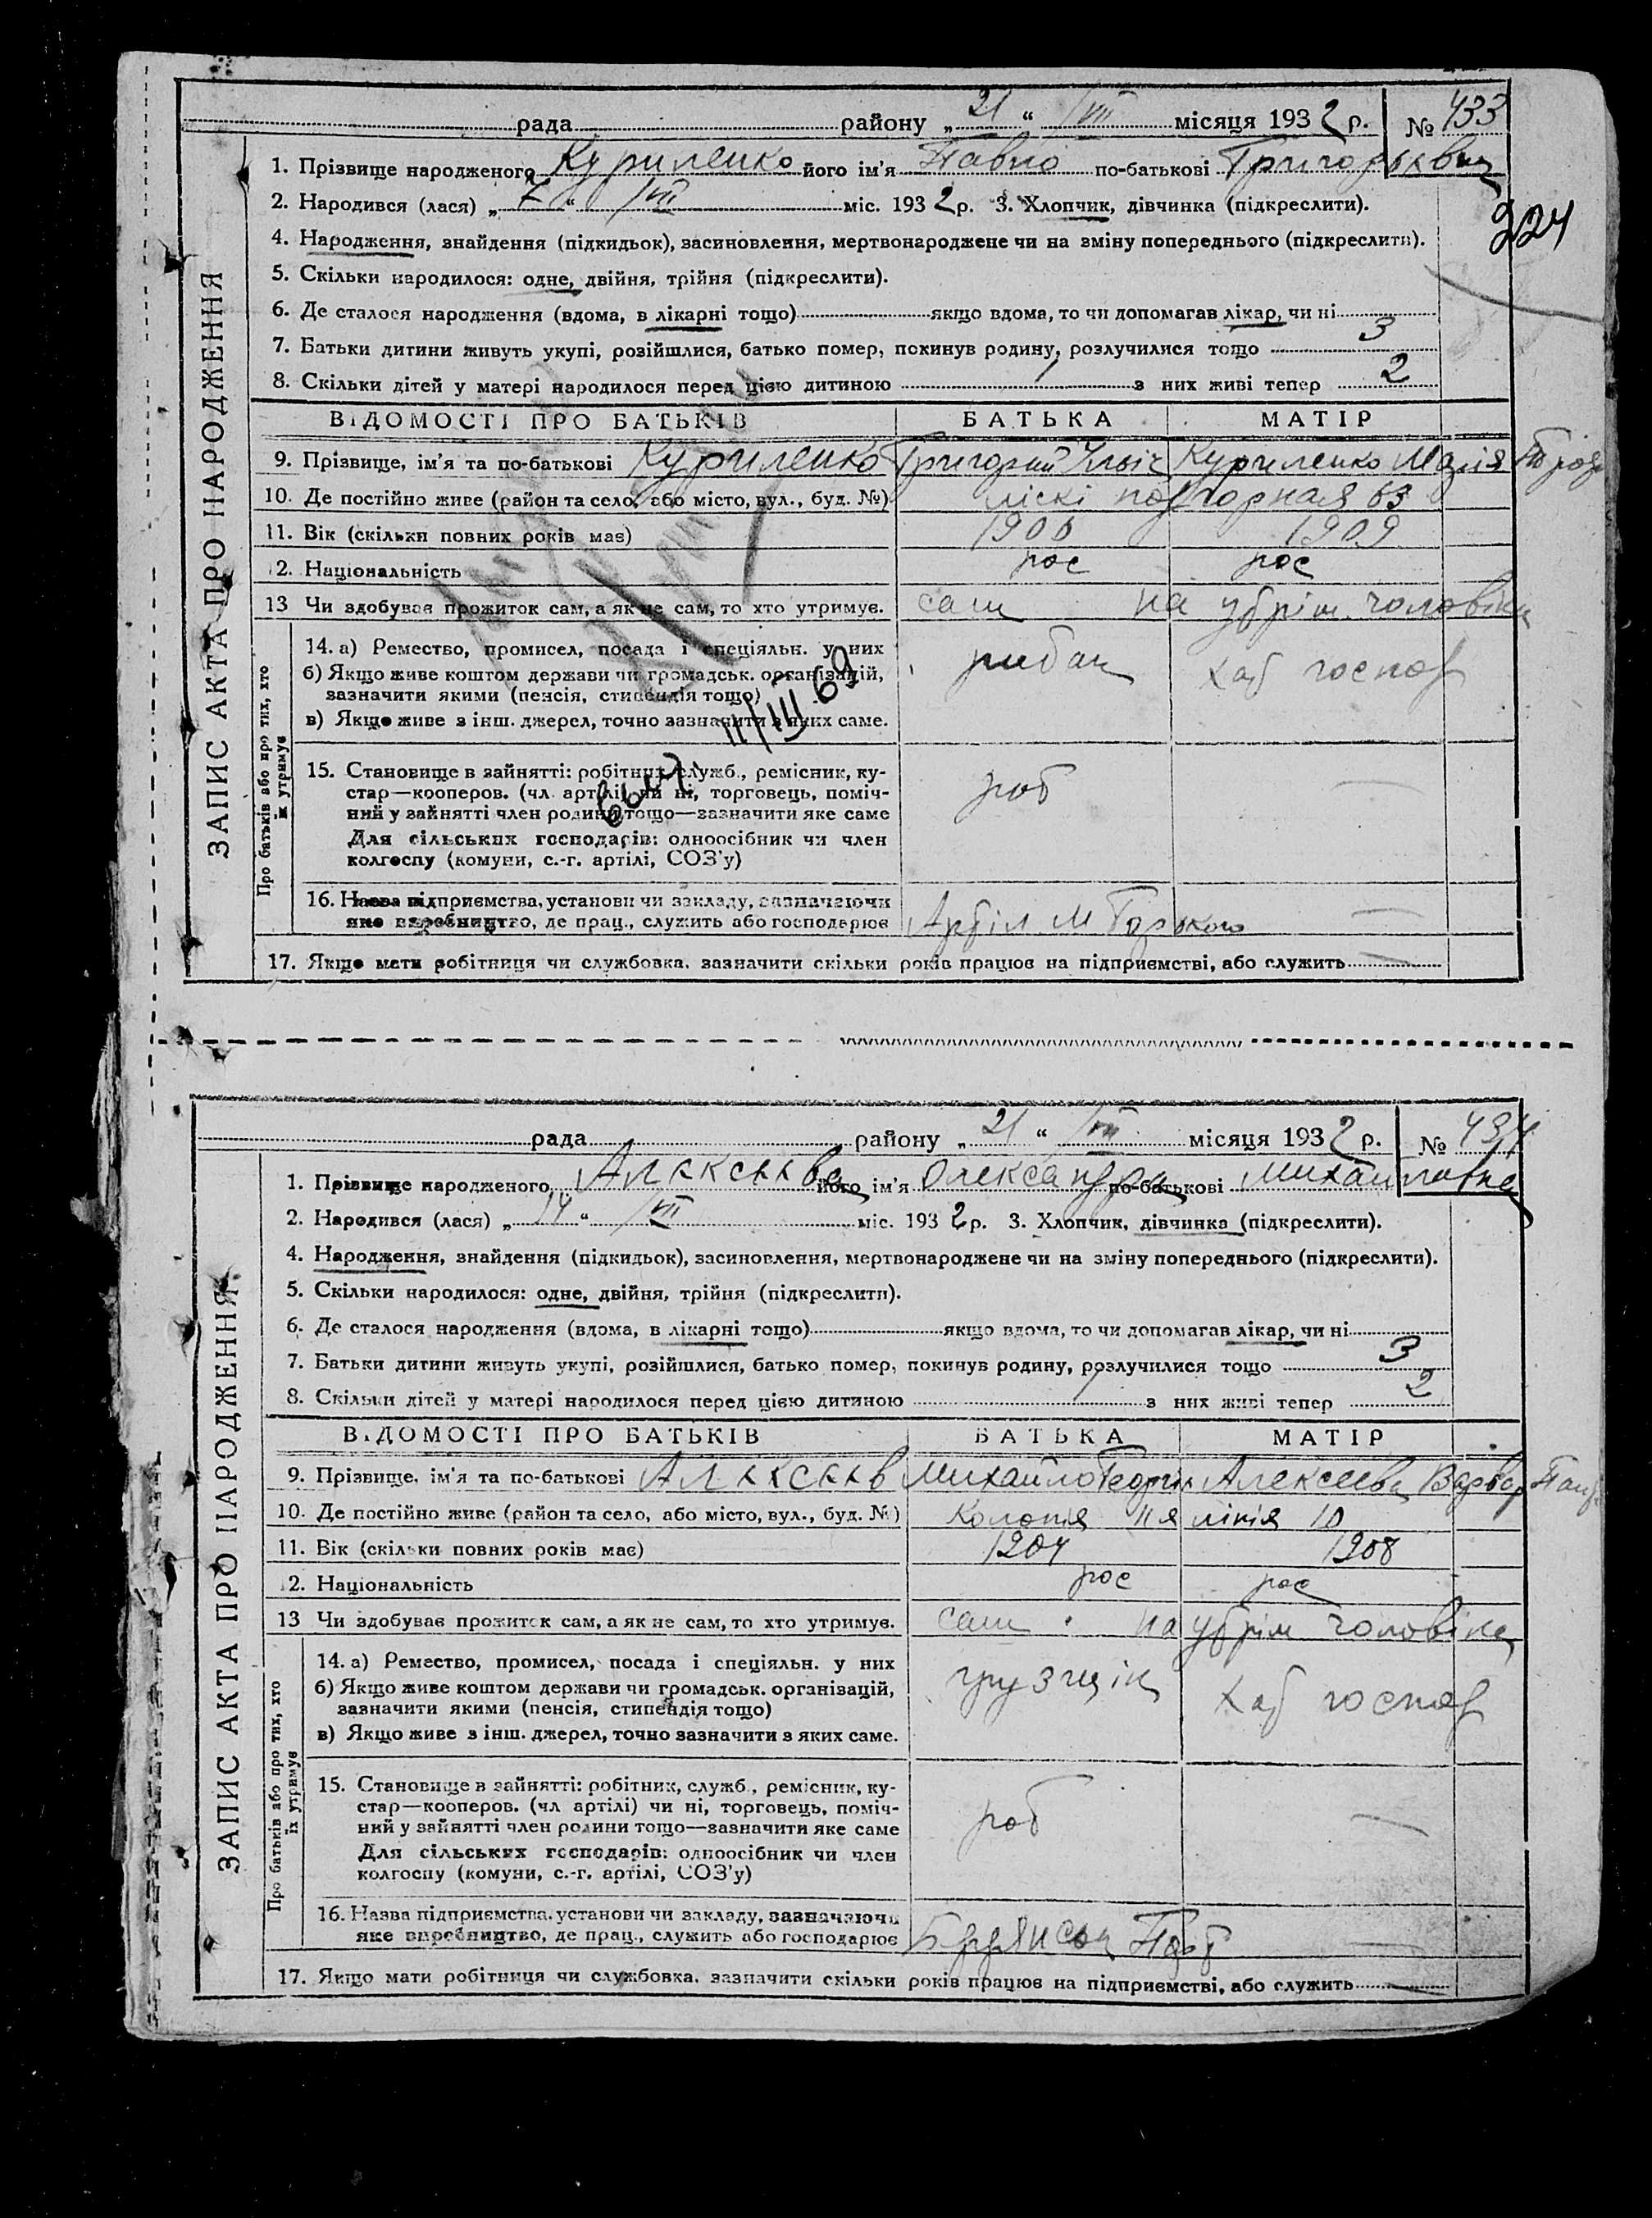 рада районУ „21“ VII місяця 1932 р. № 433
1. Прізвище народженого Куриленко його ім'я Павло по-батькові Григорьевич
2. Народився (лася) „7“ VII міс. 1932 р. 3. Хлопчик, дівчинка (підкреслити).
224
4. Народження, знайдення (підкидьок), засиновлення, мертвонароджене чи на зміну попереднього (підкреслити).
5. Скільки народилося: одне, двійня, трійня (підкреслити).
6. Де сталося народження (вдома, в лікарні тощо) якщо вдома, то чи допомагав лікар, чи ні
7. Батьки дитини живуть укупі, розійшлися, батько помер, покинув родину, розлучилися тощо 3
8. Скільки дітей у матері народилося перед цією дитиною 1 з них живі тепер 2
ВІДОМОСТІ ПРО БАТЬКІВ БАТЬКА МАТІР
9. Прізвище, ім'я та по-батькові Куриленко Григорий Ильіч Куриленко Марія
10. Де постійно живе (район та село, або місто, вул., буд. №) ліскі подгорная 63
11. Вік (скільки повних років має) 1906 1909
12. Національність рос рос
13 Чи здобував прожиток сам, а як не сам, то хто утримує. сам на утрім. чоловіка
14. а) Ремество, промисел, посада і спеціяльн. у них рибак хат господ
б) Якщо живе коштом держави чи громадськ. організацій,
зазначити якими (пенсія, стипендія тощо)
в) Якщо живе з інш. джерел, точно зазначити з яких саме.
11/III 69
15. Становище в зайнятті: робітник, служб., ремісник, ку-
стар—кооперов. (чл. артілі) чи ні, торговець, поміч-
ний у зайнятті член родини тощо—зазначити яке саме
роб —
Для сільських господарів: одноосібник чи член
колгоспу (комуни, с.-г. артілі, СОЗ'у)
16. Назва підприємства, установи чи закладу, зазначаючи
яке виробництво, де прац., служить або господарює Артіл М Горького —
17. Якщо мати робітниця чи службовка, зазначити скільки років працює на підприємстві, або служить —
ЗАПИС АКТА ПРО НАРОДЖЕННЯ
Про батьків або про тих, хто
їх утримує
рада району „21“ VII місяця 1932 р. № 434
1. Прізвище народженого Алексеева його ім'я Олександра по-батькові Михайловна
2. Народився (лася) „14“ VII міс. 1932 р. 3. Хлопчик, дівчинка (підкреслити).
4. Народження, знайдення (підкидьок), засиновлення, мертвонароджене чи на зміну попереднього (підкреслити).
5. Скільки народилося: одне, двійня, трійня (підкреслити).
6. Де сталося народження (вдома, в лікарні тощо) якщо вдома, то чи допомагав лікар, чи ні
7. Батьки дитини живуть укупі, розійшлися, батько помер, покинув родину, розлучилися тощо 3
8. Скільки дітей у матері народилося перед цією дитиною 1 з них живі тепер 2
ВІДОМОСТІ ПРО БАТЬКІВ БАТЬКА МАТІР
9. Прізвище, ім'я та по-батькові Алексеев Михайло Георгіе Алексеева Варвар
10. Де постійно живе (район та село, або місто, вул., буд. №) Колонія 11я лінія 10
11. Вік (скільки повних років має) 1904 1908
12. Національність рос рос
13 Чи здобував прожиток сам, а як не сам, то хто утримує. сам на утрім чоловіка
14. а) Ремество, промисел, посада і спеціяльн. у них грузчік хат господ
б) Якщо живе коштом держави чи громадськ. організацій,
зазначити якими (пенсія, стипендія тощо)
в) Якщо живе з інш. джерел, точно зазначити з яких саме.
15. Становище в зайнятті: робітник, служб., ремісник, ку-
стар—кооперов. (чл артілі) чи ні, торговець, поміч-
ний у зайнятті член родини тощо—зазначити яке саме
роб —
Для сільських господарів: одноосібник чи член
колгоспу (комуни, с.-г. артілі, СОЗ'у)
16. Назва підприємства, установи чи закладу, зазначаючи
яке виробництво, де прац., служить або господарює Бердянськ Порт
17. Якщо мати робітниця чи службовка, зазначити скільки років працює на підприємстві, або служить —
ЗАПИС АКТА ПРО НАРОДЖЕННЯ
Про батьків або про тих, хто
їх утримує